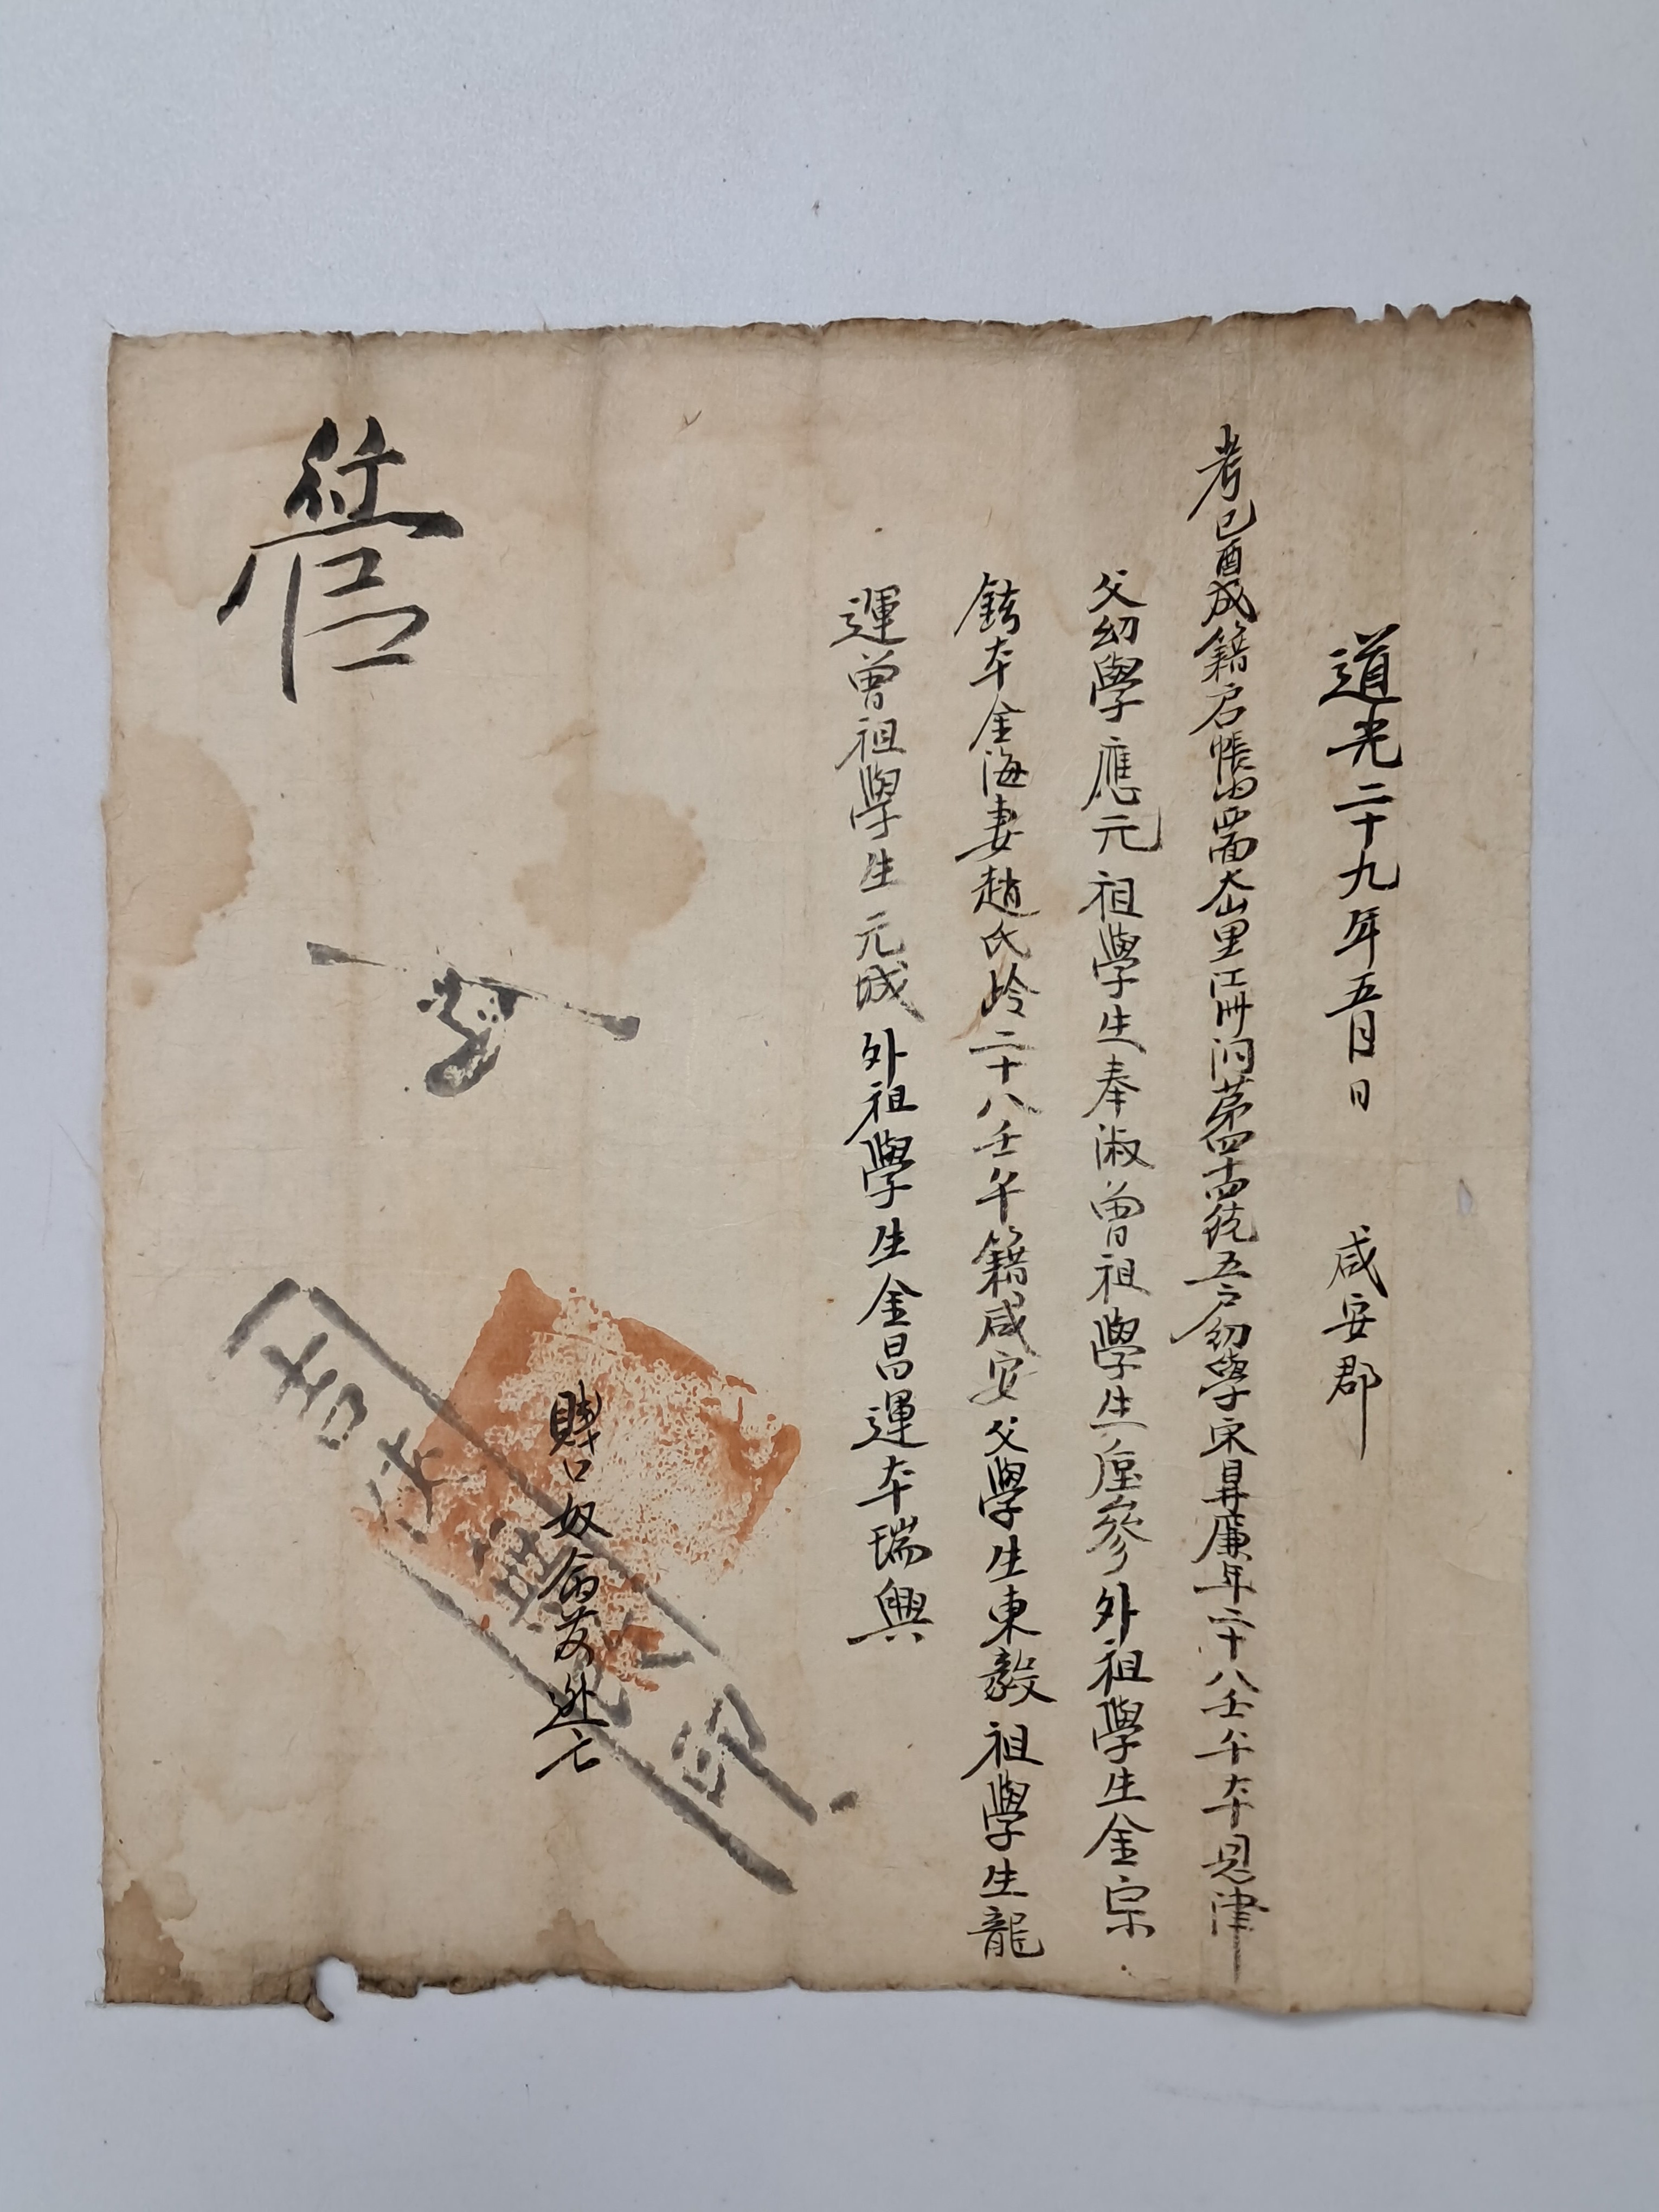 道光二十九年五月日 咸安郡
考己酉成籍户帳內 面大山里 第四十四統五户幼學宋昇廉年二十八壬午本恩津
父幼學應元祖學生奉淑曾祖學生 參外祖學生金宗
鉉本金海妻趙氏齡二十八壬午籍咸安父學生東毅祖學生龍
運曾祖學生元城外祖學生金昌運本瑞興
賤口奴 逃亡